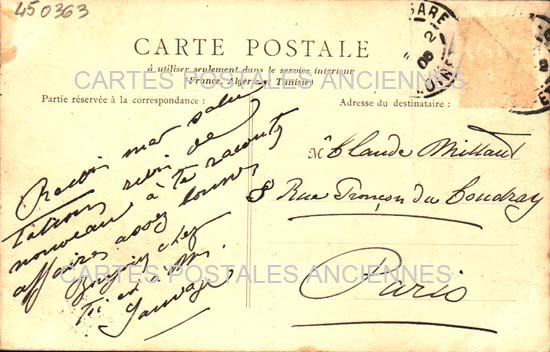 450363
GARE
CARTE POSTALE
à utiliser seulement dans le service intérieur
(France, Algérie et Tunisie)
CARTES POSTALES ANCIENNES
Partie réservée à la correspondance :
Adresse du destinataire :
mes
rien de
nouveau à te raconter
affaires assez
Bonjour chez
Toi et à
Sauvage
M. Claude Millaut
8 Rue Tronçon du Coudray
Paris
CARTES POSTALES ANCIENNES